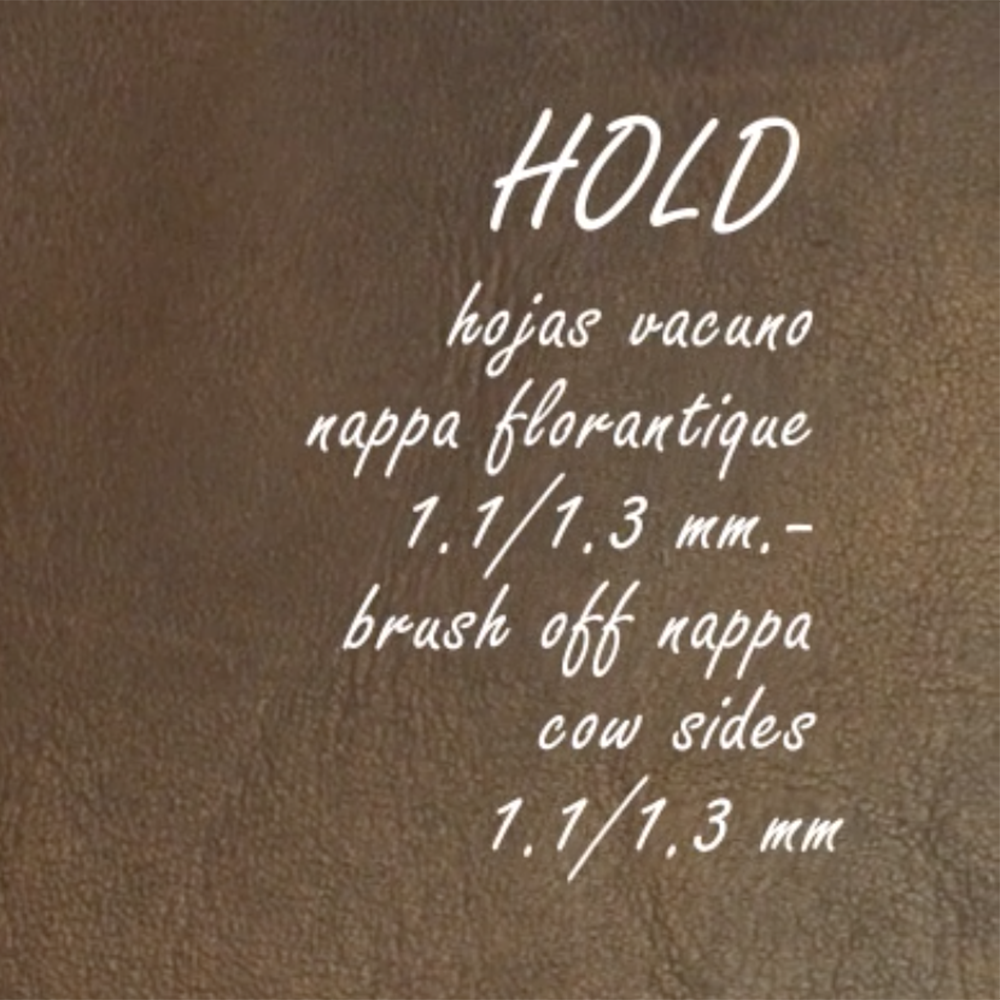 HOLD
hojas vacuno
nappa florantique
1.1/1.3 mm.-
brush off nappa
cow sides
1.1/1.3 mm